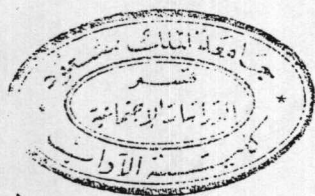 جامعة الملك سعود
قسم
الدراسات الاجتماعية
كلية الآداب